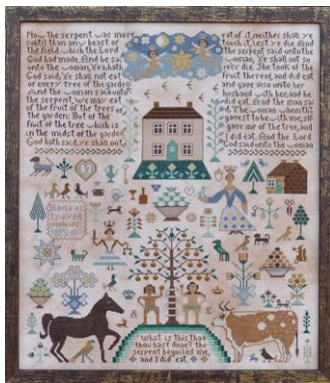 Now the serpent was more
subtil than any beast of
the field which the Lord
God had made. And he said
unto the woman, Yea, hath
God said, Ye shall not eat
of every tree of the garden
And the woman said unto
the serpent, we may eat
of the fruit of the trees of
the garden: But of the
fruit of the tree which is
in the midst of the garden
God hath said, ye shall not
eat of it, neither shall ye
touch it, lest ye die. And
the serpent said unto the
woman, Ye shall not su
rely die. She took of the
fruit thereof, and did eat
and gave also unto her
husband with her, and he
did eat. And the man sa
id, The woman whom th
gavest to be with me, she
gave me of the tree, and
I did eat. And the Lord
God said unto the woman
What is this that
thou hast done? the
serpent beguiled me,
and I did eat.